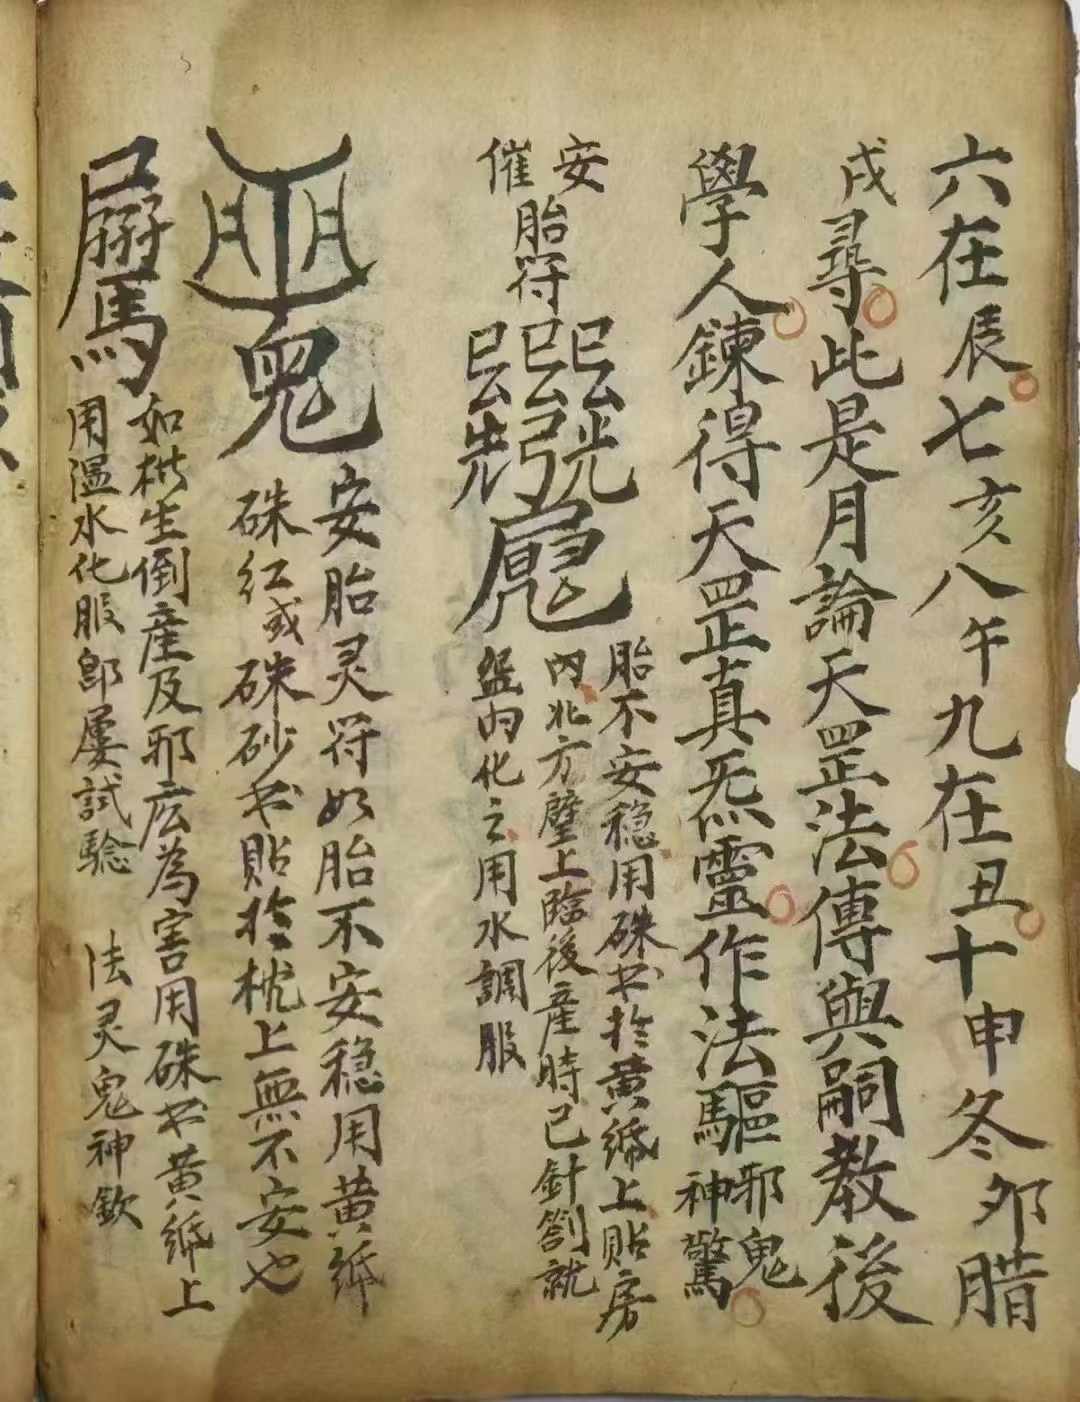 六在辰七亥八午九在丑十申冬夘腊
戌尋此是月論天罡法傳與嗣教後
學人鍊得天罡真炁靈作法驅邪鬼神驚
安
催
胎符
胎不安穩用硃书扵黄紙上贴房
內北方壁上臨後產時已針劄就
盌内化之用水調服
安胎灵符如胎不安稳用黄紙
硃红或硃砂书貼扵枕上無不安也
如橫生倒產及邪広為害用硃书黄紙上
用溫水化服即屢試驗 法灵鬼神欽